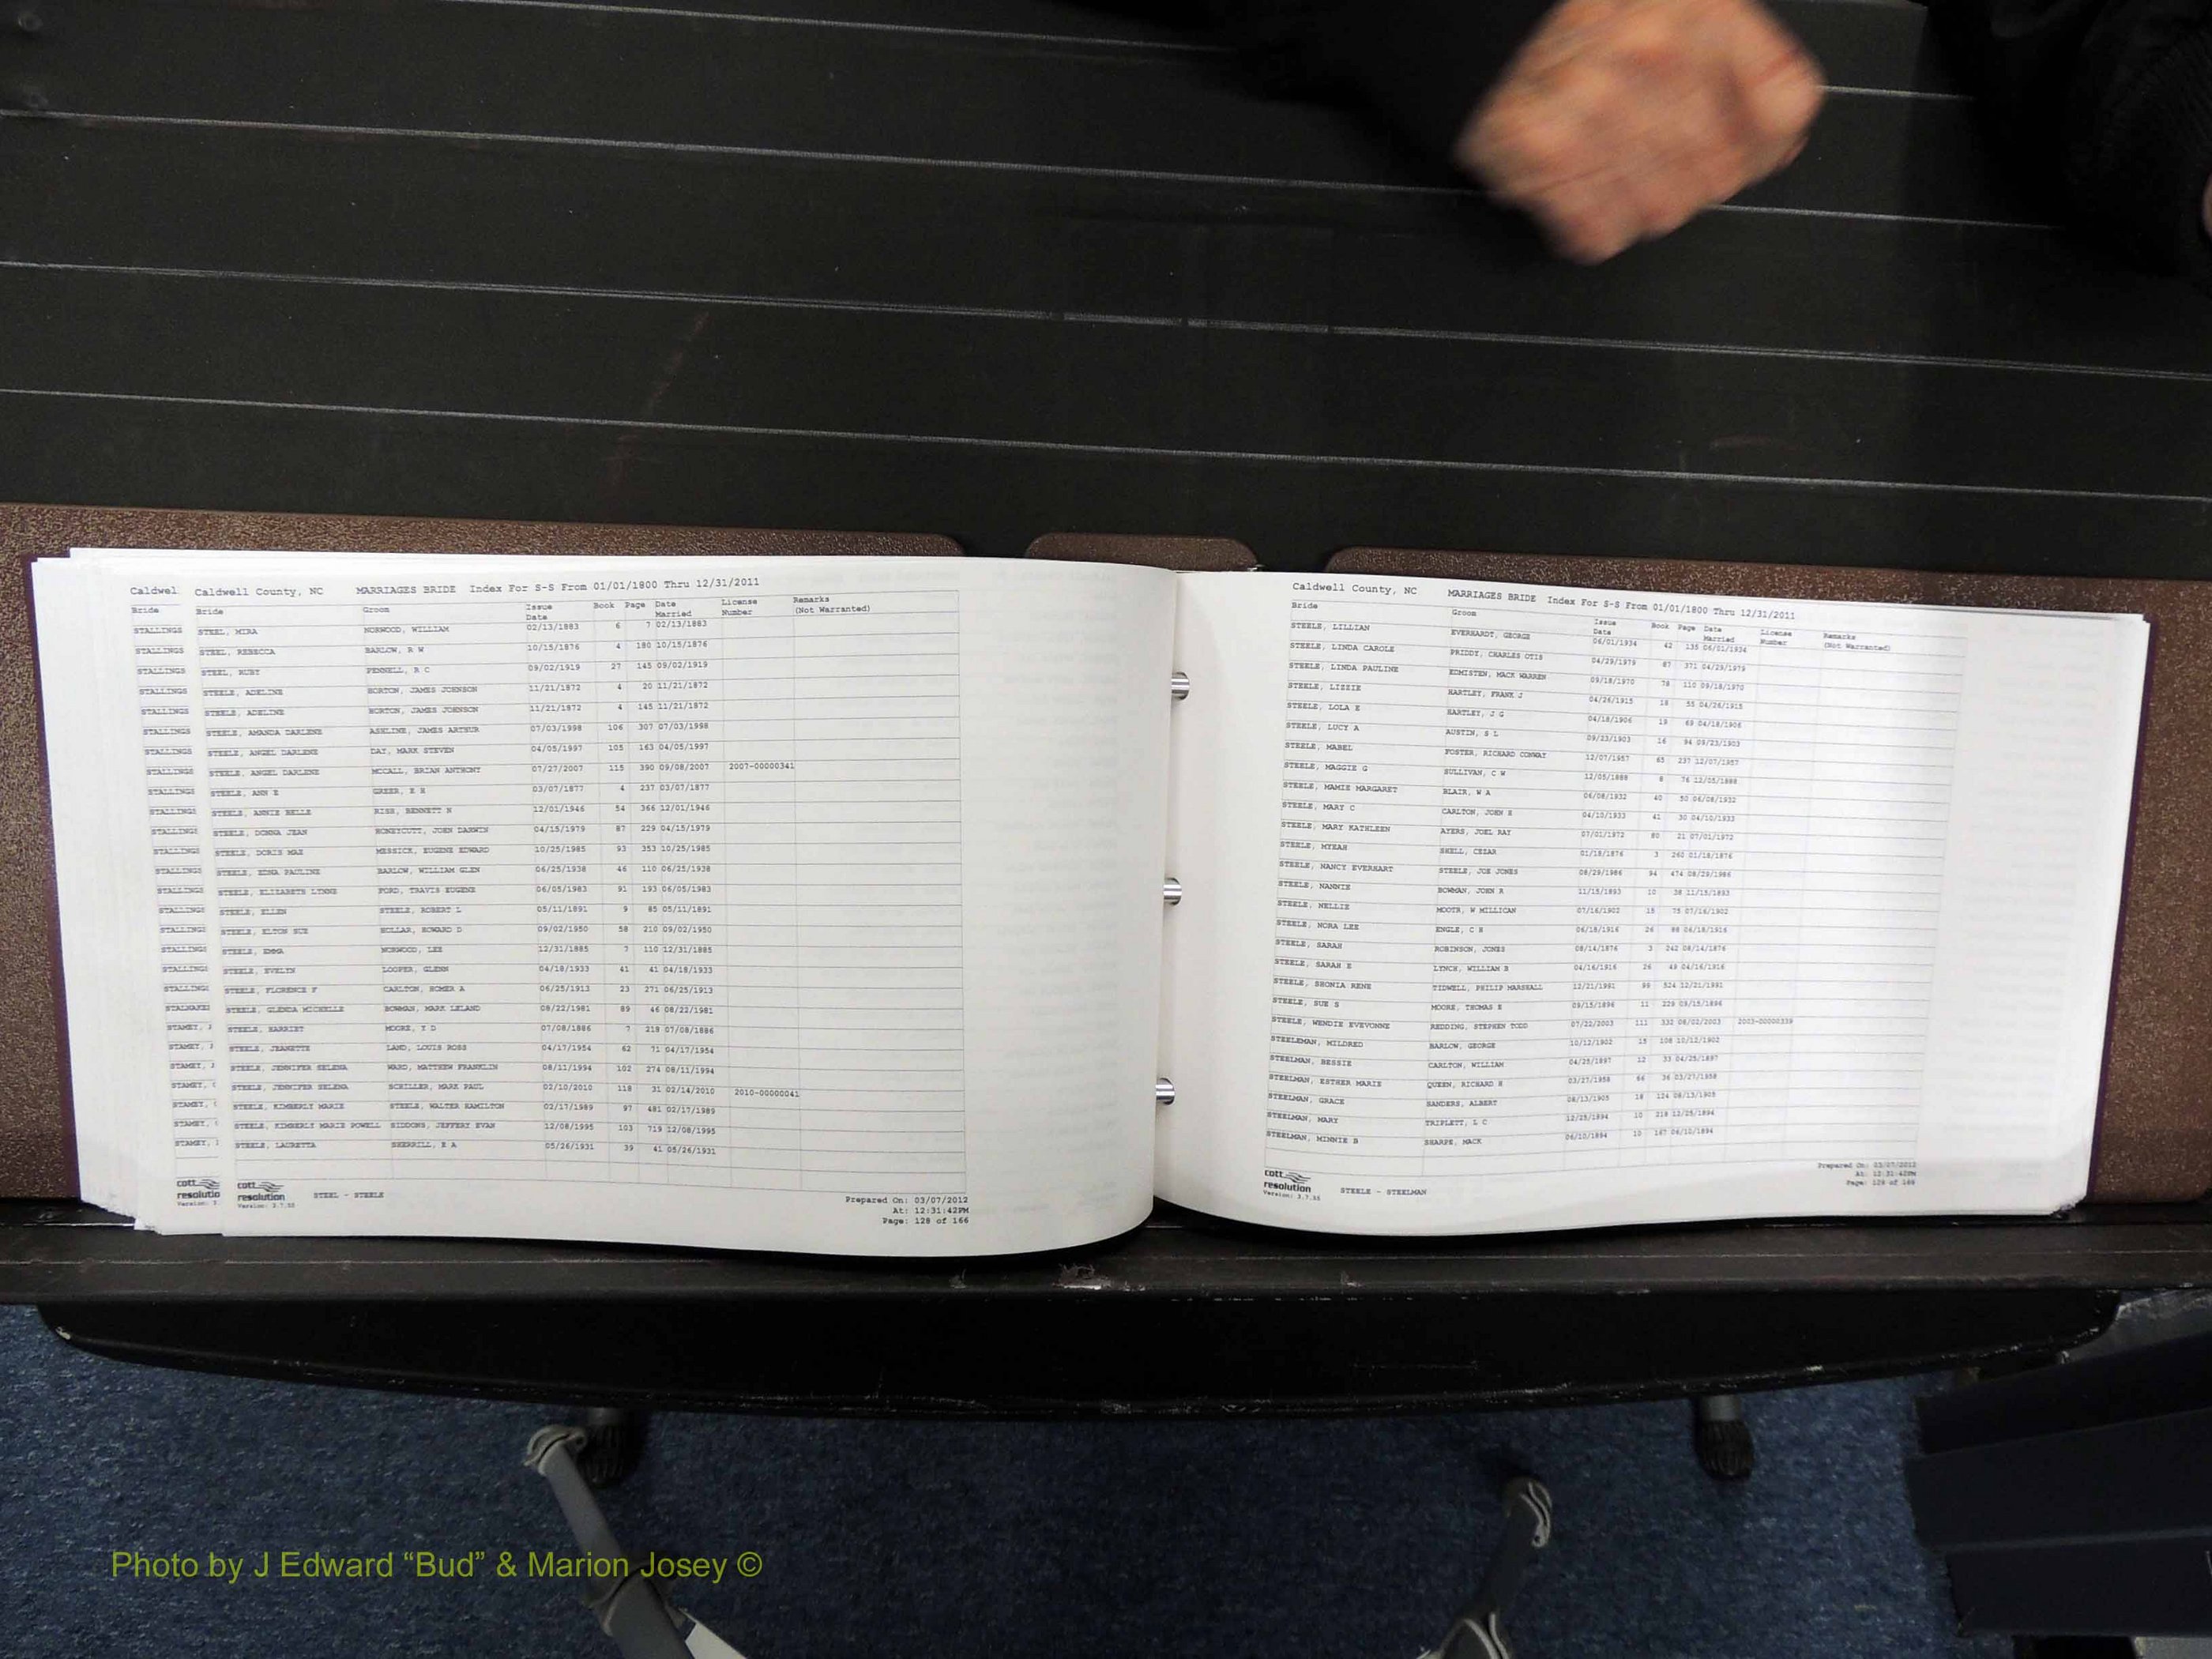 Caldwel
Bride
STALLINGS
STALLINGS
STALLINGS
STALLINGS
STALLINGS
STALLINGS
STALLINGS
STALLINGS
STALLINGS
STALLINGS
STALLINGS
STALLINGS
STALLINGS
STALLINGS
STALLINGS
STALLINGS
STALLINGS
STALLINGS
STALLINGS
STAMEY, J
STAMEY, J
STAMEY, J
STAMEY,
STAMEY,
STAMEY,
STAMEY,
cott
resolutio
Caldwell County, NC MARRIAGES BRIDE Index For S-S From 01/01/1800 Thru 12/31/2011
Bride Groom Issue Date Book Page Date Married License Number Remarks (Not Warranted)
STEEL, MIRA NORWOOD, WILLIAM 02/13/1883 6 7 02/13/1883
STEEL, REBECCA BARLOW, R W 10/15/1876 4 180 10/15/1876
STEEL, RUBY PENNELL, R C 09/02/1919 27 145 09/02/1919
STEELE, ADELINE HORTON, JAMES JOHNSON 11/21/1872 4 20 11/21/1872
STEELE, ADELINE HORTON, JAMES JOHNSON 11/21/1872 4 145 11/21/1872
STEELE, AMANDA DARLENE ASHLINE, JAMES ARTHUR 07/03/1998 106 307 07/03/1998
STEELE, ANGEL DARLENE DAY, MARK STEVEN 04/05/1997 105 163 04/05/1997
STEELE, ANGEL DARLENE MCCALL, BRIAN ANTHONY 07/27/2007 115 390 09/08/2007 2007-00000341
STEELE, ANN E GREER, E H 03/07/1877 4 237 03/07/1877
STEELE, ANNIE BELLE RISH, BENNETT N 12/01/1946 54 366 12/01/1946
STEELE, DONNA JEAN HONEYCUTT, JOHN DARWIN 04/15/1979 87 229 04/15/1979
STEELE, DORIS MAE MESSICK, EUGENE EDWARD 10/25/1985 93 353 10/25/1985
STEELE, EDNA PAULINE BARLOW, WILLIAM GLEN 06/25/1938 46 110 06/25/1938
STEELE, ELIZABETH LYNNE FORD, TRAVIS EUGENE 06/05/1983 91 193 06/05/1983
STEELE, ELLEN STEELE, ROBERT L 05/11/1891 9 85 05/11/1891
STEELE, ELTON SUE HOLLAR, HOWARD D 09/02/1950 58 210 09/02/1950
STEELE, EMMA NORWOOD, LEE 12/31/1885 7 110 12/31/1885
STEELE, EVELYN LOOPER, GLENN 04/18/1933 41 41 04/18/1933
STEELE, FLORENCE F CARLTON, HOMER A 06/25/1913 23 271 06/25/1913
STEELE, GLENDA MICHELLE BOWMAN, MARK LELAND 08/22/1981 89 46 08/22/1981
STEELE, HARRIET MOORE, T D 07/08/1886 7 218 07/08/1886
STEELE, JEANETTE LAND, LOUIS ROSS 04/17/1954 62 71 04/17/1954
STEELE, JENNIFER SELENA WARD, MATTHEW FRANKLIN 08/11/1994 102 274 08/11/1994
STEELE, JENNIFER SELENA SCHILLER, MARK PAUL 02/10/2010 118 31 02/14/2010 2010-00000041
STEELE, KIMBERLY MARIE STEELE, WALTER HAMILTON 02/17/1989 97 481 02/17/1989
STEELE, KIMBERLY MARIE POWELL SIDDONS, JEFFERY EVAN 12/08/1995 103 719 12/08/1995
STEELE, LAURETTA SHERRILL, E A 05/26/1931 39 41 05/26/1931
cott
resolution
Version: 3.7.55
STEEL - STEELE
Prepared On: 03/07/2012
At: 12:31:42PM
Page: 128 of 166
Caldwell County, NC MARRIAGES BRIDE Index For S-S From 01/01/1800 Thru 12/31/2011
Bride Groom Issue Date Book Page Date Married License Number Remarks (Not Warranted)
STEELE, LILLIAN EVERHARDT, GEORGE 06/01/1934 42 135 06/01/1934
STEELE, LINDA CAROLE PRIDDY, CHARLES OTIS 04/29/1979 87 371 04/29/1979
STEELE, LINDA PAULINE EDMISTEN, MACK WARREN 09/18/1970 78 110 09/18/1970
STEELE, LIZZIE HARTLEY, FRANK J 04/26/1915 18 55 04/26/1915
STEELE, LOLA E HARTLEY, J G 04/18/1906 19 69 04/18/1906
STEELE, LUCY A AUSTIN, S L 09/23/1903 16 94 09/23/1903
STEELE, MABEL FOSTER, RICHARD CONWAY 12/07/1957 65 237 12/07/1957
STEELE, MAGGIE G SULLIVAN, C W 12/05/1888 8 76 12/05/1888
STEELE, MAMIE MARGARET BLAIR, W A 06/08/1932 40 50 06/08/1932
STEELE, MARY C CARLTON, JOHN H 04/10/1933 41 30 04/10/1933
STEELE, MARY KATHLEEN AYERS, JOEL RAY 07/01/1972 80 21 07/01/1972
STEELE, MYRAH SHELL, CEZAR 01/18/1876 3 260 01/18/1876
STEELE, NANCY EVERHART STEELE, JOE JONES 08/29/1986 94 474 08/29/1986
STEELE, NANNIE BOWMAN, JOHN R 11/15/1893 10 38 11/15/1893
STEELE, NELLIE MOOTR, W MILLICAN 07/16/1902 15 75 07/16/1902
STEELE, NORA LEE ENGLE, C H 06/18/1916 26 88 06/18/1916
STEELE, SARAH ROBINSON, JONES 08/14/1876 3 242 08/14/1876
STEELE, SARAH E LYNCH, WILLIAM B 04/16/1916 26 49 04/16/1916
STEELE, SHONIA RENE TIDWELL, PHILIP MARSHALL 12/21/1991 99 524 12/21/1991
STEELE, SUE S MOORE, THOMAS E 09/15/1896 11 229 09/15/1896
STEELE, WENDIE EVEVONNE REDDING, STEPHEN TODD 07/22/2003 111 332 08/02/2003 2003-00000339
STEELEMAN, MILDRED BARLOW, GEORGE 10/12/1902 15 108 10/12/1902
STEELMAN, BESSIE CARLTON, WILLIAM 04/25/1897 12 33 04/25/1897
STEELMAN, ESTHER MARIE QUEEN, RICHARD H 03/27/1958 66 36 03/27/1958
STEELMAN, GRACE SANDERS, ALBERT 08/13/1905 18 124 08/13/1905
STEELMAN, MARY TRIPLETT, L C 12/25/1894 10 218 12/25/1894
STEELMAN, MINNIE B SHARPE, MACK 06/10/1894 10 167 06/10/1894
cott
resolution
Version: 3.7.55
STEELE - STEELMAN
Prepared On: 03/07/2012
At: 12:31:42PM
Page: 129 of 166
Photo by J Edward “Bud” & Marion Josey ©